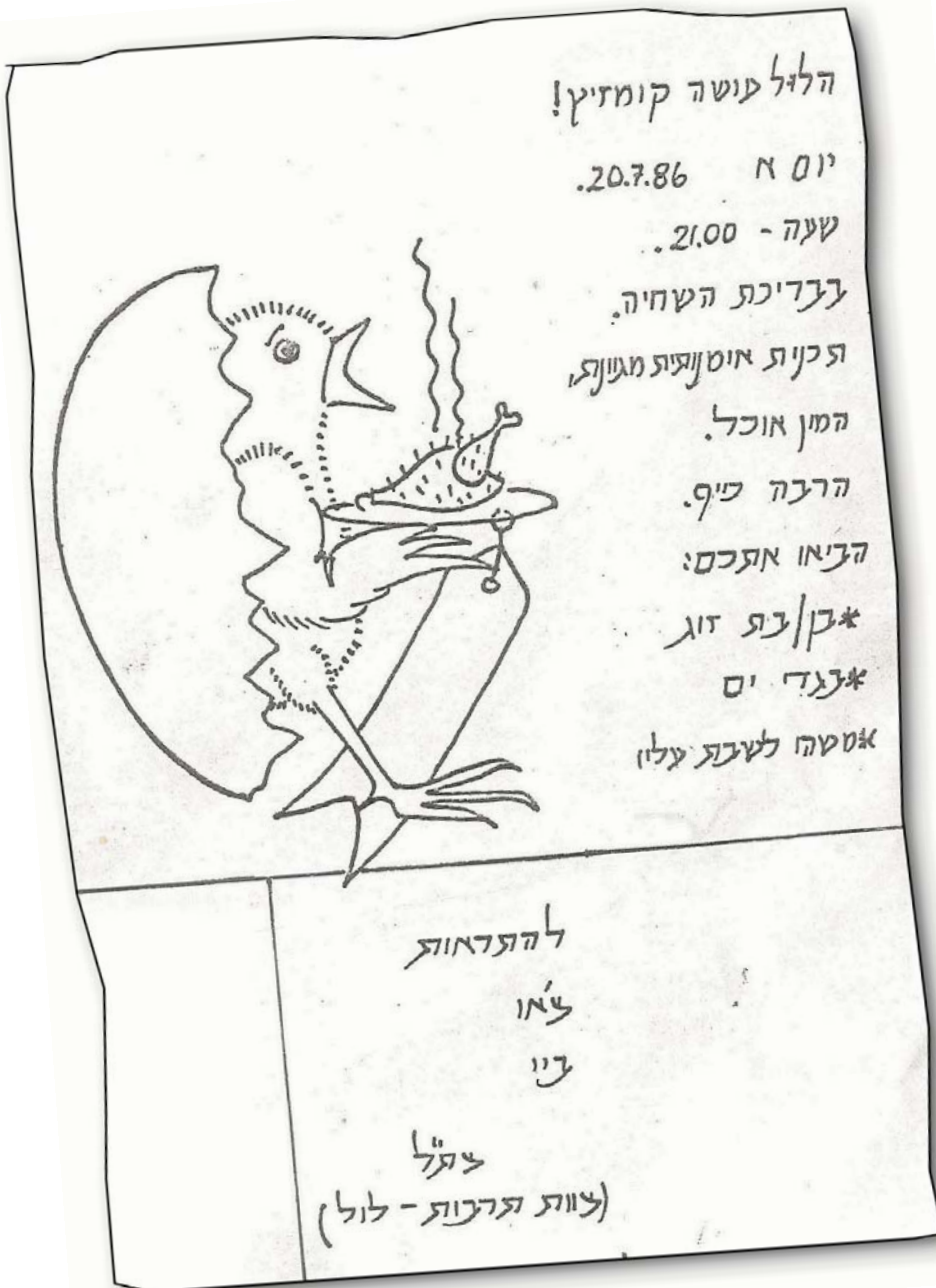 הלול עושה קומזיץ!
יום א 20.7.86.
שעה - 21.00.
בבריכת השחיה.
תכנית אימנותית מגוונת,
המון אוכל.
הרבה כיף.
הביאו אתכם:
*בן/בת זוג
*בגדי ים
*משהו לשבת עליו
להתראות
צ'או
ביי
צת"ל
(צוות תרבות - לול)